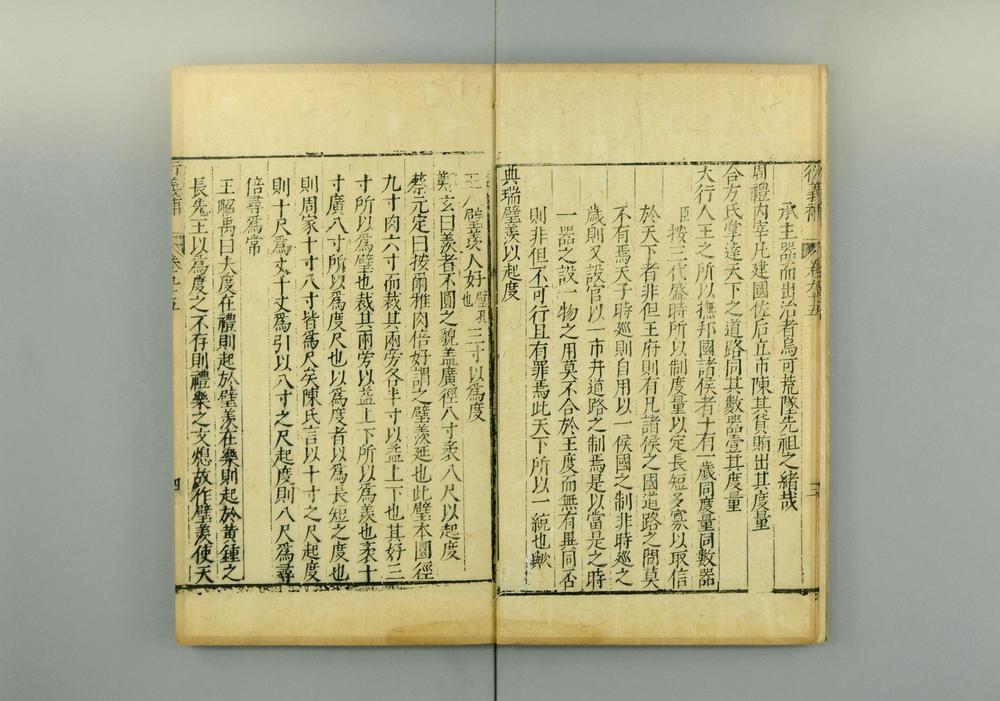 衍義補 卷九十五 三
承主器而出治者烏可荒墜先祖之緒哉
周禮內宰凡建國佐后立市陳其貨賄出其度量
合方氏掌達天下之道路同其數器壹其度量
大行人王之所以撫邦國諸侯者十有一歲同度量同數器
臣按三代盛時所以制度量以定長短多寡以取信
於天下者非但王府則有凡諸侯之國道路之間莫
不有焉天子時廵則自用以一侯國之制非時廵之
歲則又設官以一市井道路之制焉是以當是之時
一器之設一物之用莫不合於王度而無有異同否
則非但不可行且有罪焉此天下所以一統也歟
典瑞璧羨以起度
玉人璧羨人好璧孔也三寸以為度
鄭玄曰羨者不圜之貌蓋廣徑八寸袤八尺以起度
蔡元定曰按爾雅肉倍好謂之璧羨延也此璧本圜徑
九寸肉六寸而裁其兩旁各半寸以益上下也其好三
寸所以為璧也裁其兩旁以益上下所以為羨也袤十
寸廣八寸所以為度尺也以為度者以為長短之度也
則周家十寸八寸皆為尺矣陳氏言以十寸之尺起度
則十尺為丈十丈為引以八寸之尺起度則八尺為尋
倍尋為常
王昭禹曰夫度在禮則起於璧羨在樂則起於黄鍾之
長先王以為度之不存則禮樂之文熄故作璧羨使天
衍義補 卷九十五 四